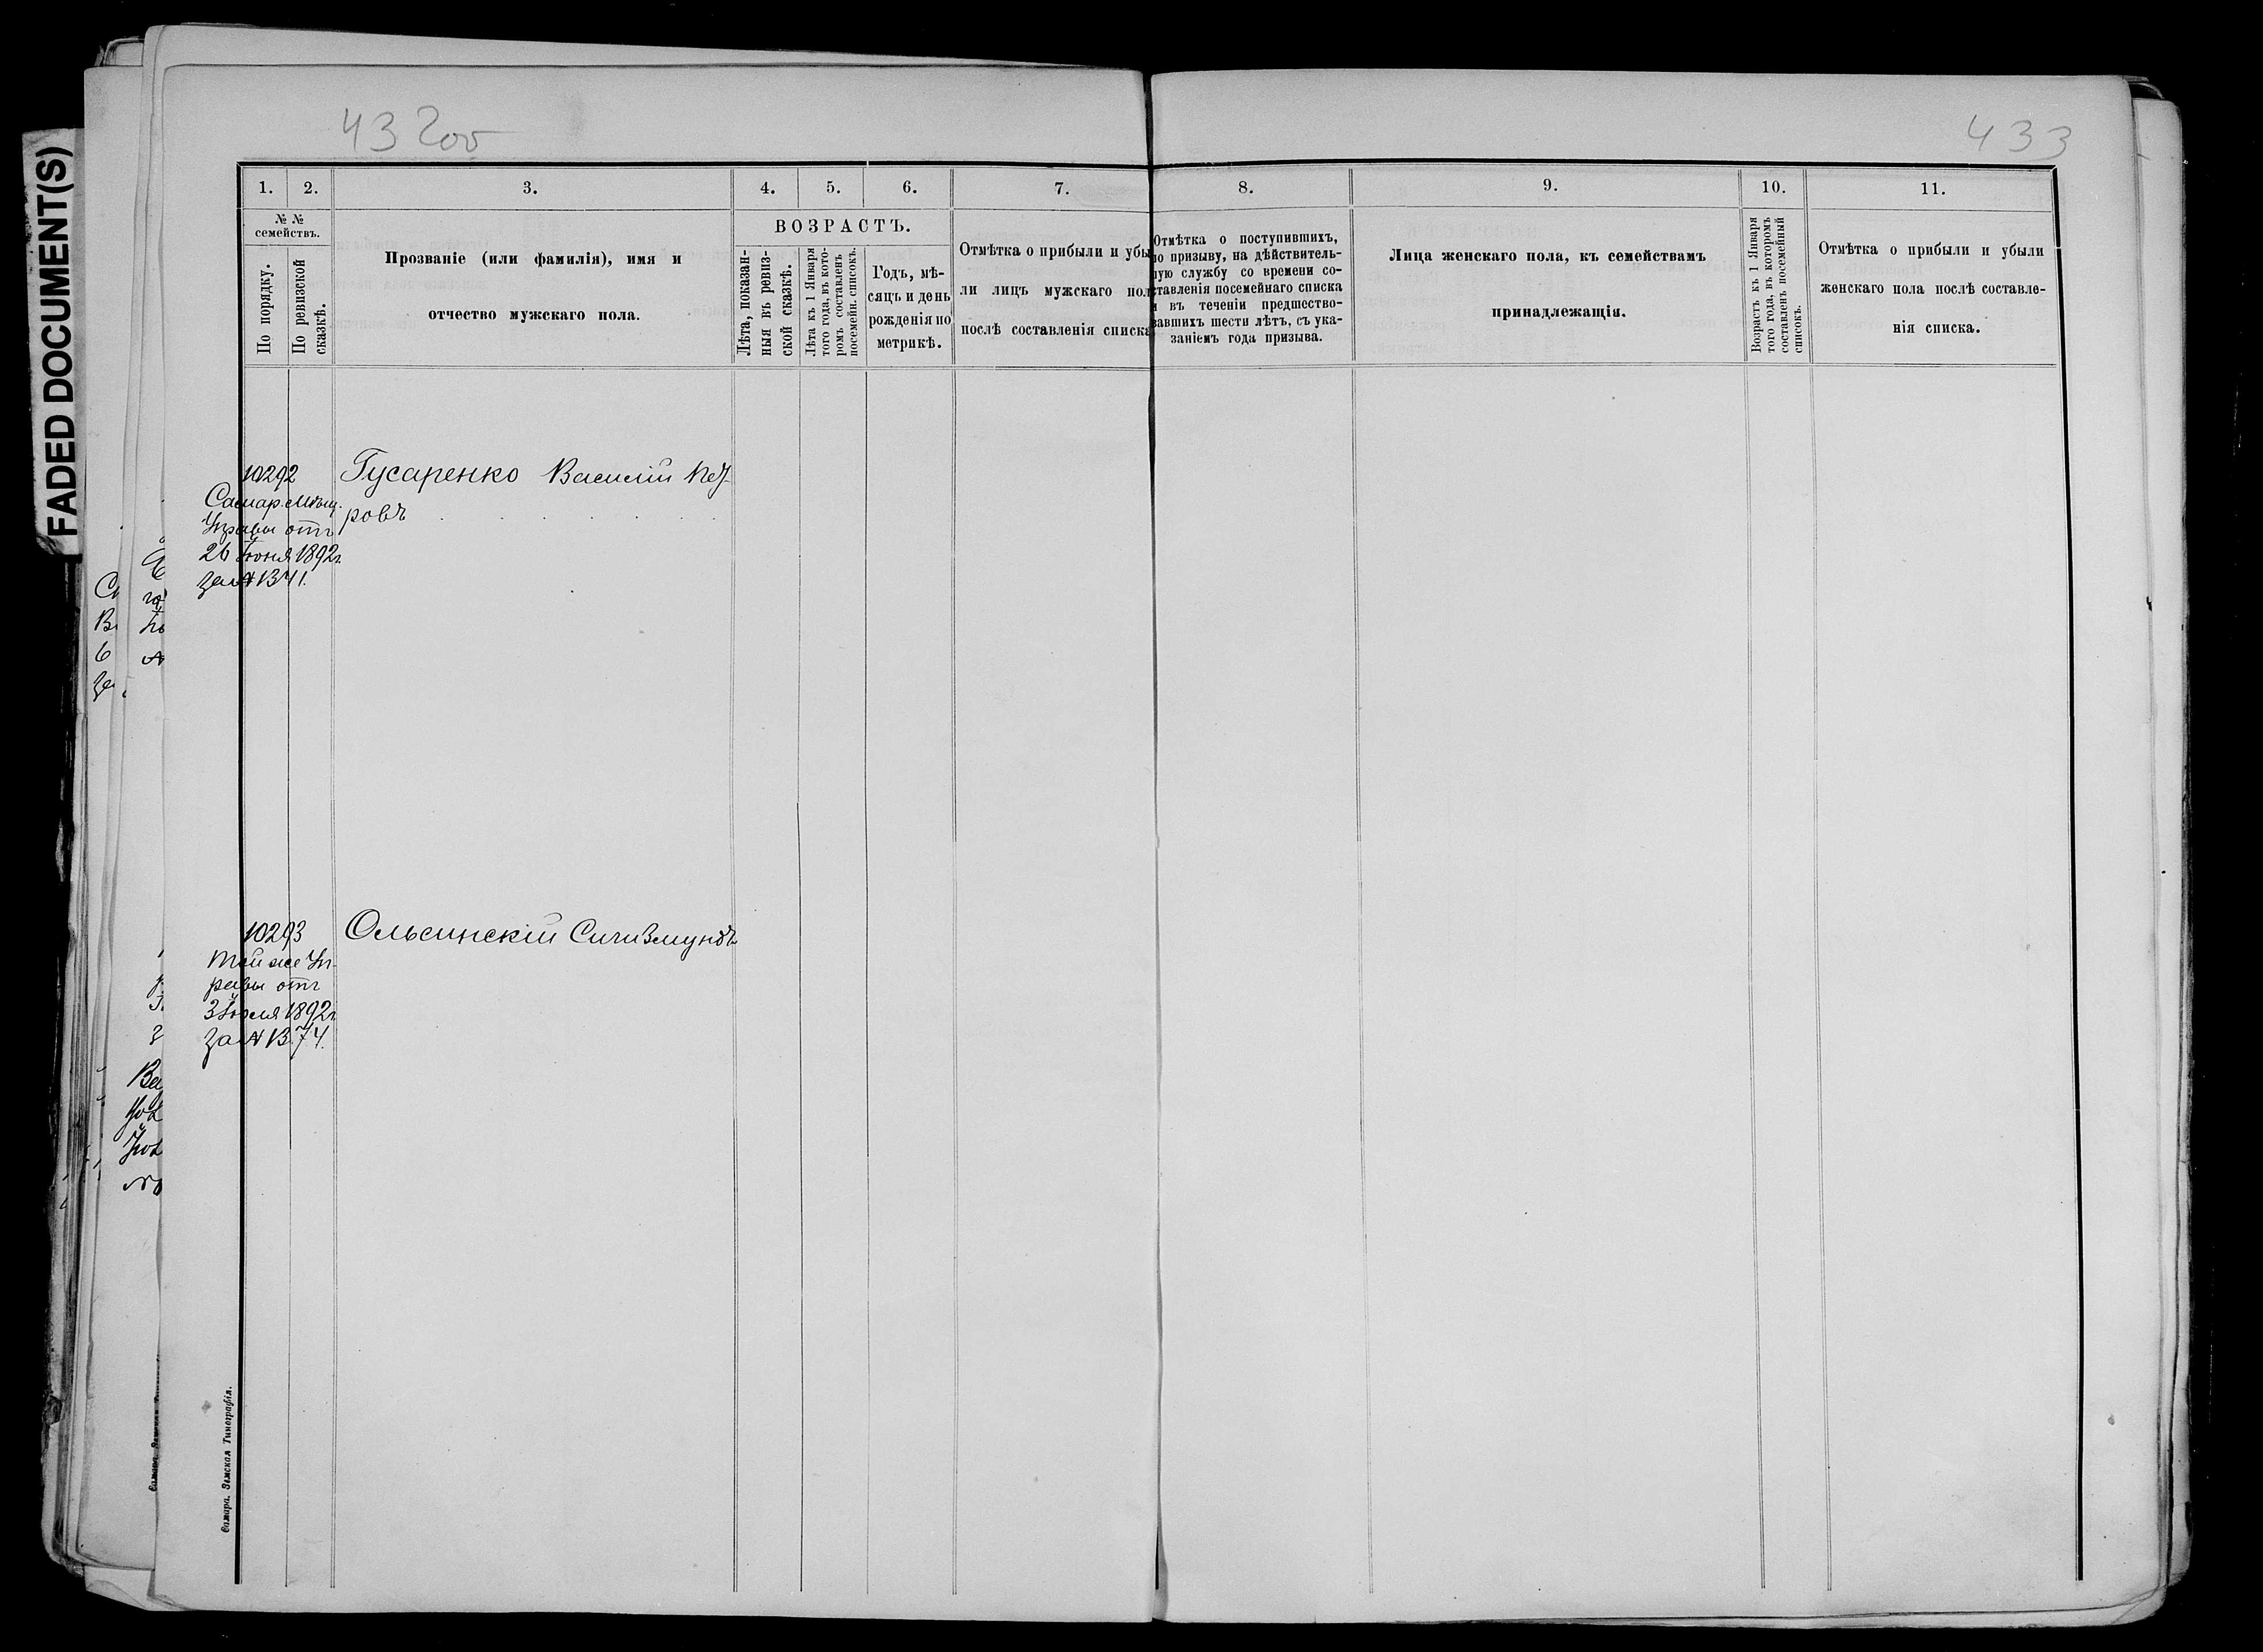 FADED DOCUMENT(S)
432об
433
1. 2. 3. 4. 5. 6. 7. 8. 9. 10. 11.
№ №
семействъ.
По порядку.
По ревизской
сказкѣ.
Прозваніе (или фамилія), имя и
отчество мужскаго пола.
ВОЗРАСТЪ.
Лѣта, показан-
ныя въ ревиз-
ской сказкѣ.
Лѣта къ 1 Января
того года, въ кото-
ромъ составленъ
посемейн. списокъ.
Годъ, мѣ-
сяцъ и день
рожденія по
метрикѣ.
Отмѣтка о прибыли и убы
ли лицъ мужскаго пола
послѣ составленія списка
Отмѣтка о поступившихъ,
по призыву, на дѣйствитель-
ную службу со времени со-
ставленія посемейнаго списка
и въ теченіи предшество-
вавшихъ шести лѣтъ, съ ука-
заніемъ года призыва.
Лица женскаго пола, къ семействамъ
принадлежащія.
Возрастъ къ 1 Января
того года, въ которомъ
составленъ посемейный
списокъ.
Отмѣтка о прибыли и убыли
женскаго пола послѣ составле-
нія списка.
10292 Гусаренко Василій Пет-
ровъ
Самар. Мѣщ.
Управы отъ
26 Іюня 1892г.
за № 1341.
10293 Ольсинскій Сигизмундъ
той же Уп-
равы отъ
3 Іюля 1892г.
за № 1374.
Самара. Земская Типографія.